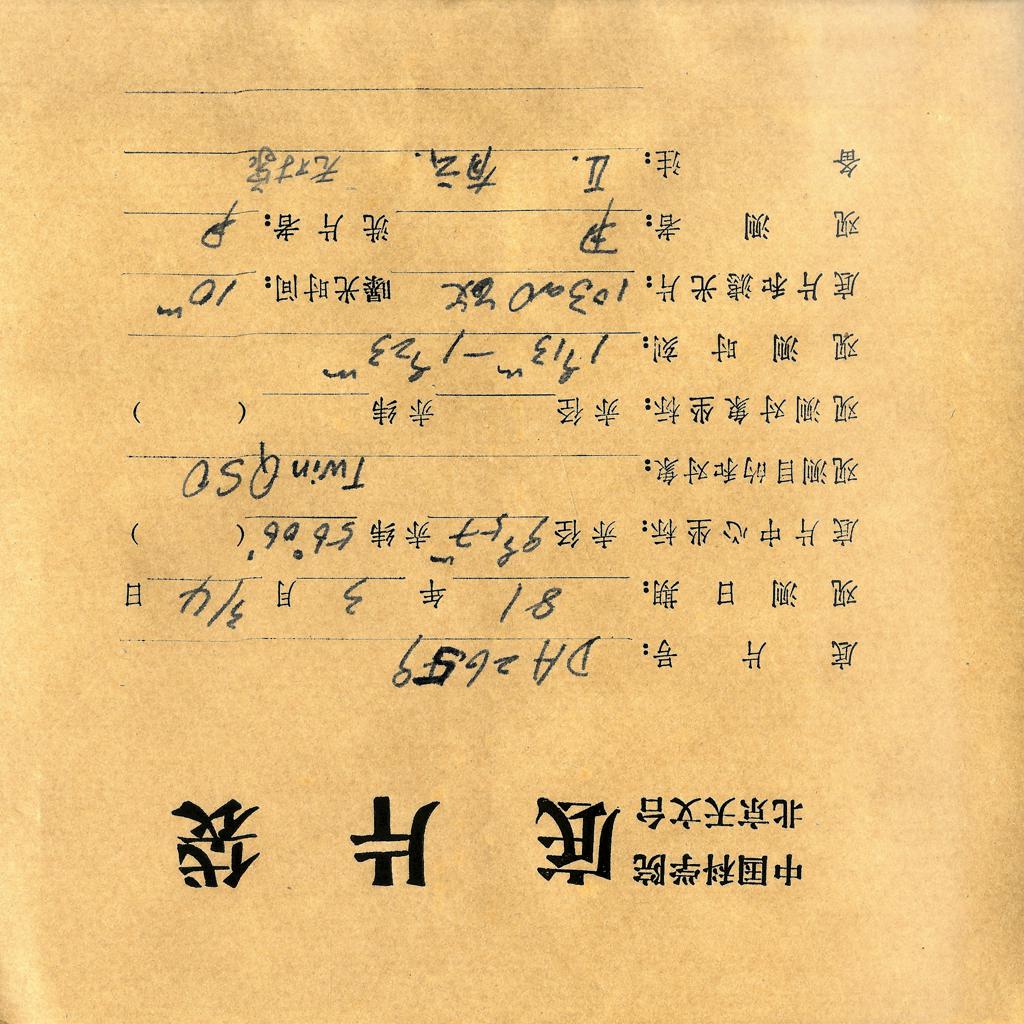 中国科学院
北京天文台
底片袋
底片号: DA2659
观测日期: 81年3月3/4日
底片中心坐标: 赤径 9ʰ57ᵐ 赤纬 56°06′ ( )
观测目的和对象: Twin QSO
观测对象坐标: 赤径 赤纬 ( )
观测时刻: 1ʰ13ᵐ-1ʰ23ᵐ
底片和滤光片: 103aO 曝光时间: 10ᵐ
观测者: 洗片者:
备注: II. 有云. 无对象